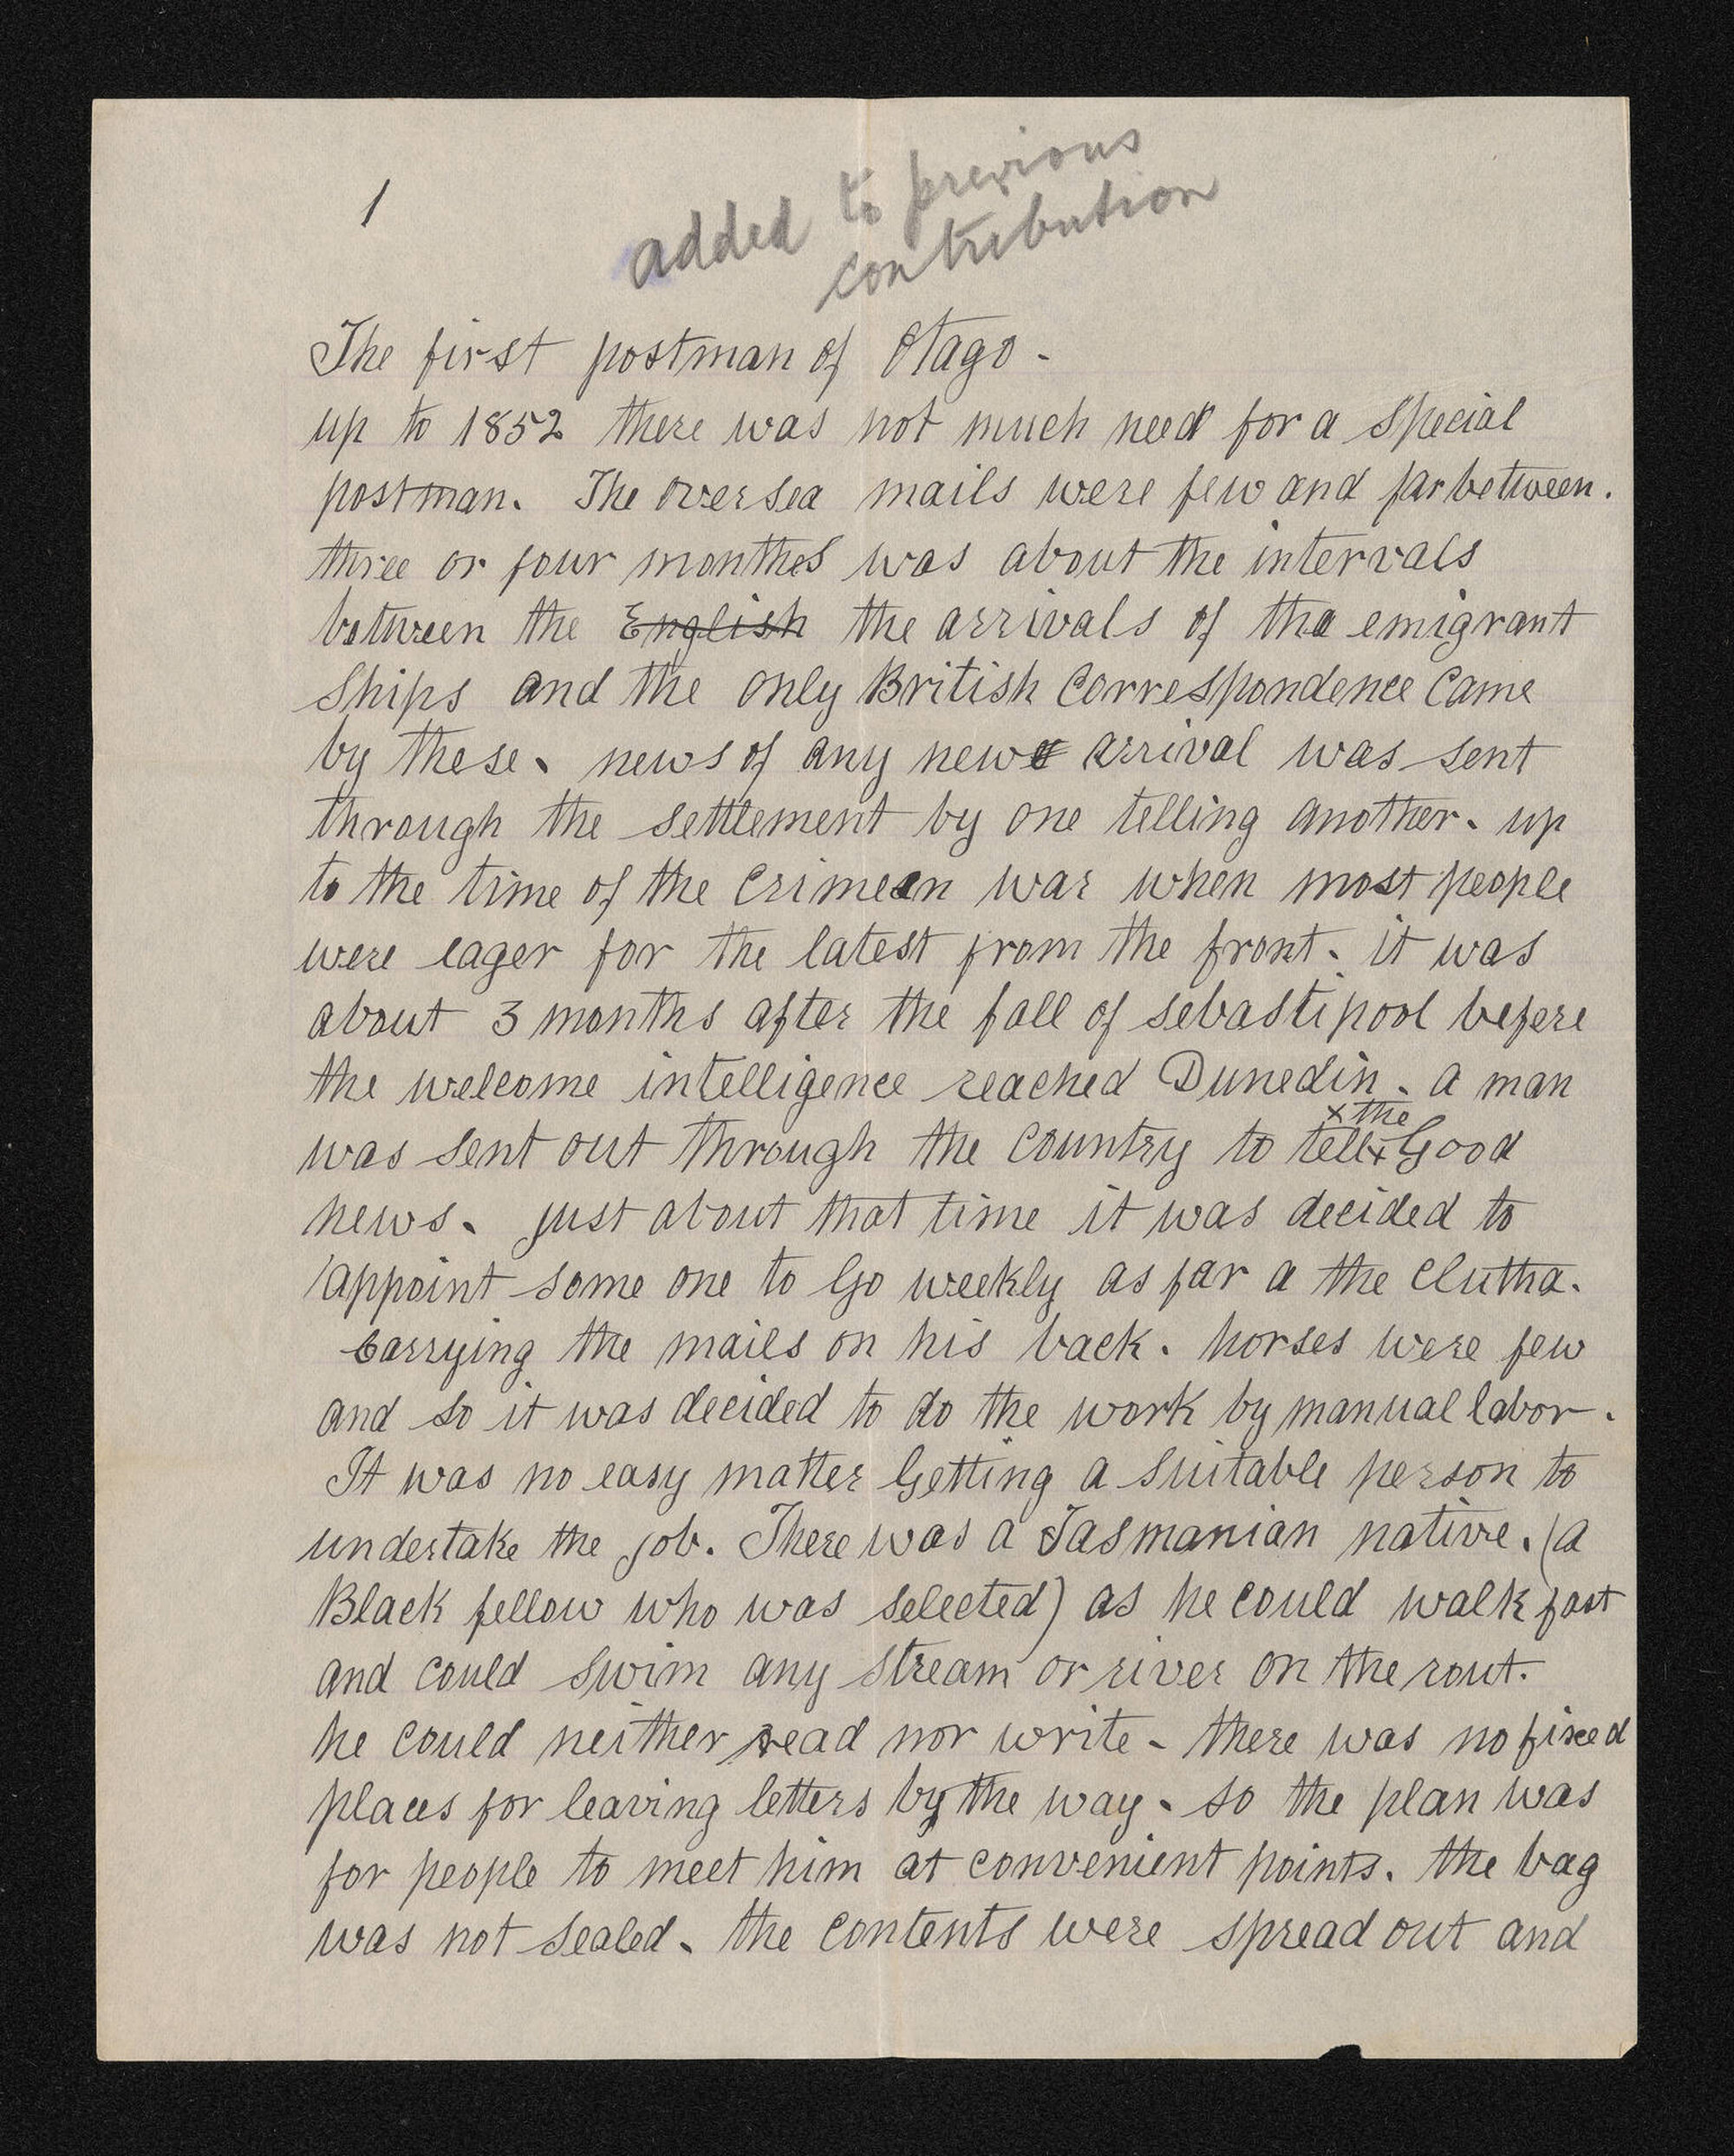 1
added to previous
contribution
The first postman of Otago -
up to 1852 there was not much need for a special
postman. The over sea mails were few and far between.
three or four monthes was about the intervals
between the ~~English~~ the arrivals of the emigrant
Ships and the only British Correspondence Came
by these. news of any new arrival was sent
through the settlement by one telling another. up
to the time of the Crimean war when most people
were eager for the latest from the front. it was
about 3 months after the fall of sebastipool before
the welcome intelligence reached Dunedin. a man
x the
was sent out through the Country to tell x Good
news. just about that time it was decided to
appoint some one to Go weekly as far a the Clutha.
Carrying the mails on his back. horses were few
and so it was decided to do the work by manual labor.
It was no easy matter Getting a Suitable person to
undertake the job. There was a Tasmanian native. (a
Black fellow who was selected) as he could walk fast
and could swim any stream or river on the rout.
he could neither read nor write - there was no fixed
places for leaving letters by the way. so the plan was
for people to meet him at convenient points. the bag
was not sealed. the contents were spread out and